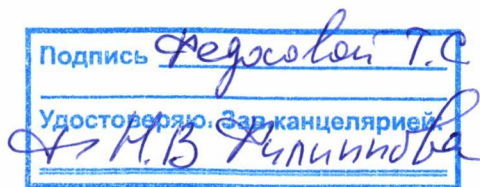 Подпись Федосовой Т.С
Удостоверяю. Зав.канцелярией:
Н.В Филиппова